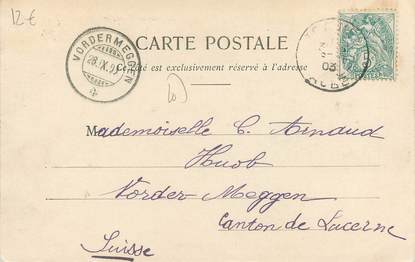 12 €
VORDERMEGGEN
CARTE POSTALE
Ce côté est exclusivement réservé à l'adresse
03
POSTES
Mademoiselle C. Arnaud
Huob
Vorder-Meggen
Canton de Lucerne
Suisse